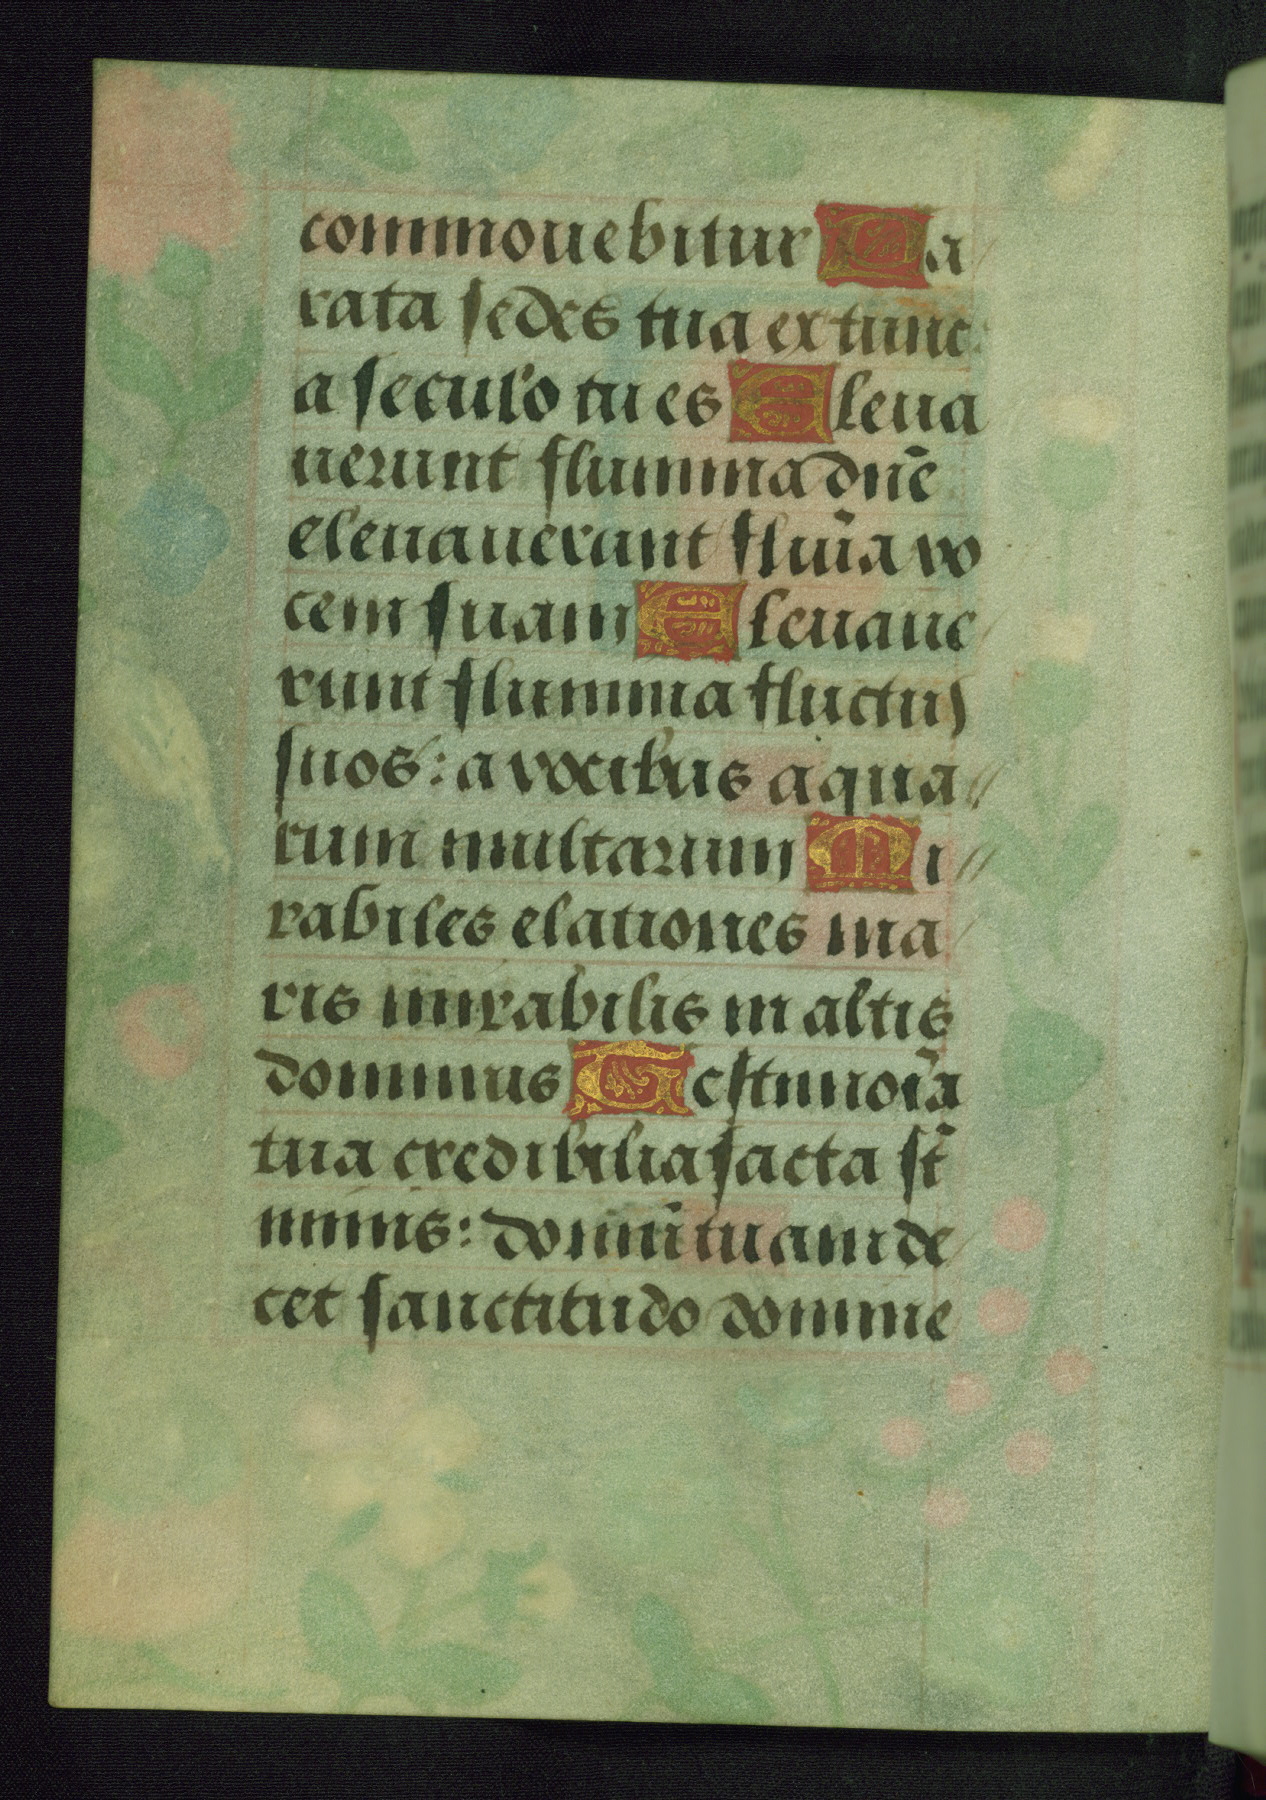 commouebitur Pa
rata sedes tua ex tunc
a seculo tu es Eleua
uerunt flumina dn̄e
eleuauerunt flumīa vo
cem suam Eleuaue
runt flumina fluctus
suos: a vocibus aqua
rum multarum Mi
rabiles elationes ma
ris mirabilis in altis
dominus Testimoīa
tua credibilia facta st̄
nimis: domū tuam de
cet sanctitudo domine